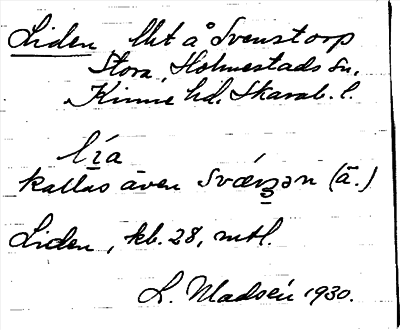 Liden lht å Svenstorp
Stora, Holmestads sn.
Kinne hd. Skarab. l.
kallas även (ä.)
Liden, kb. 28, mtl.
L. Madsén 1930.